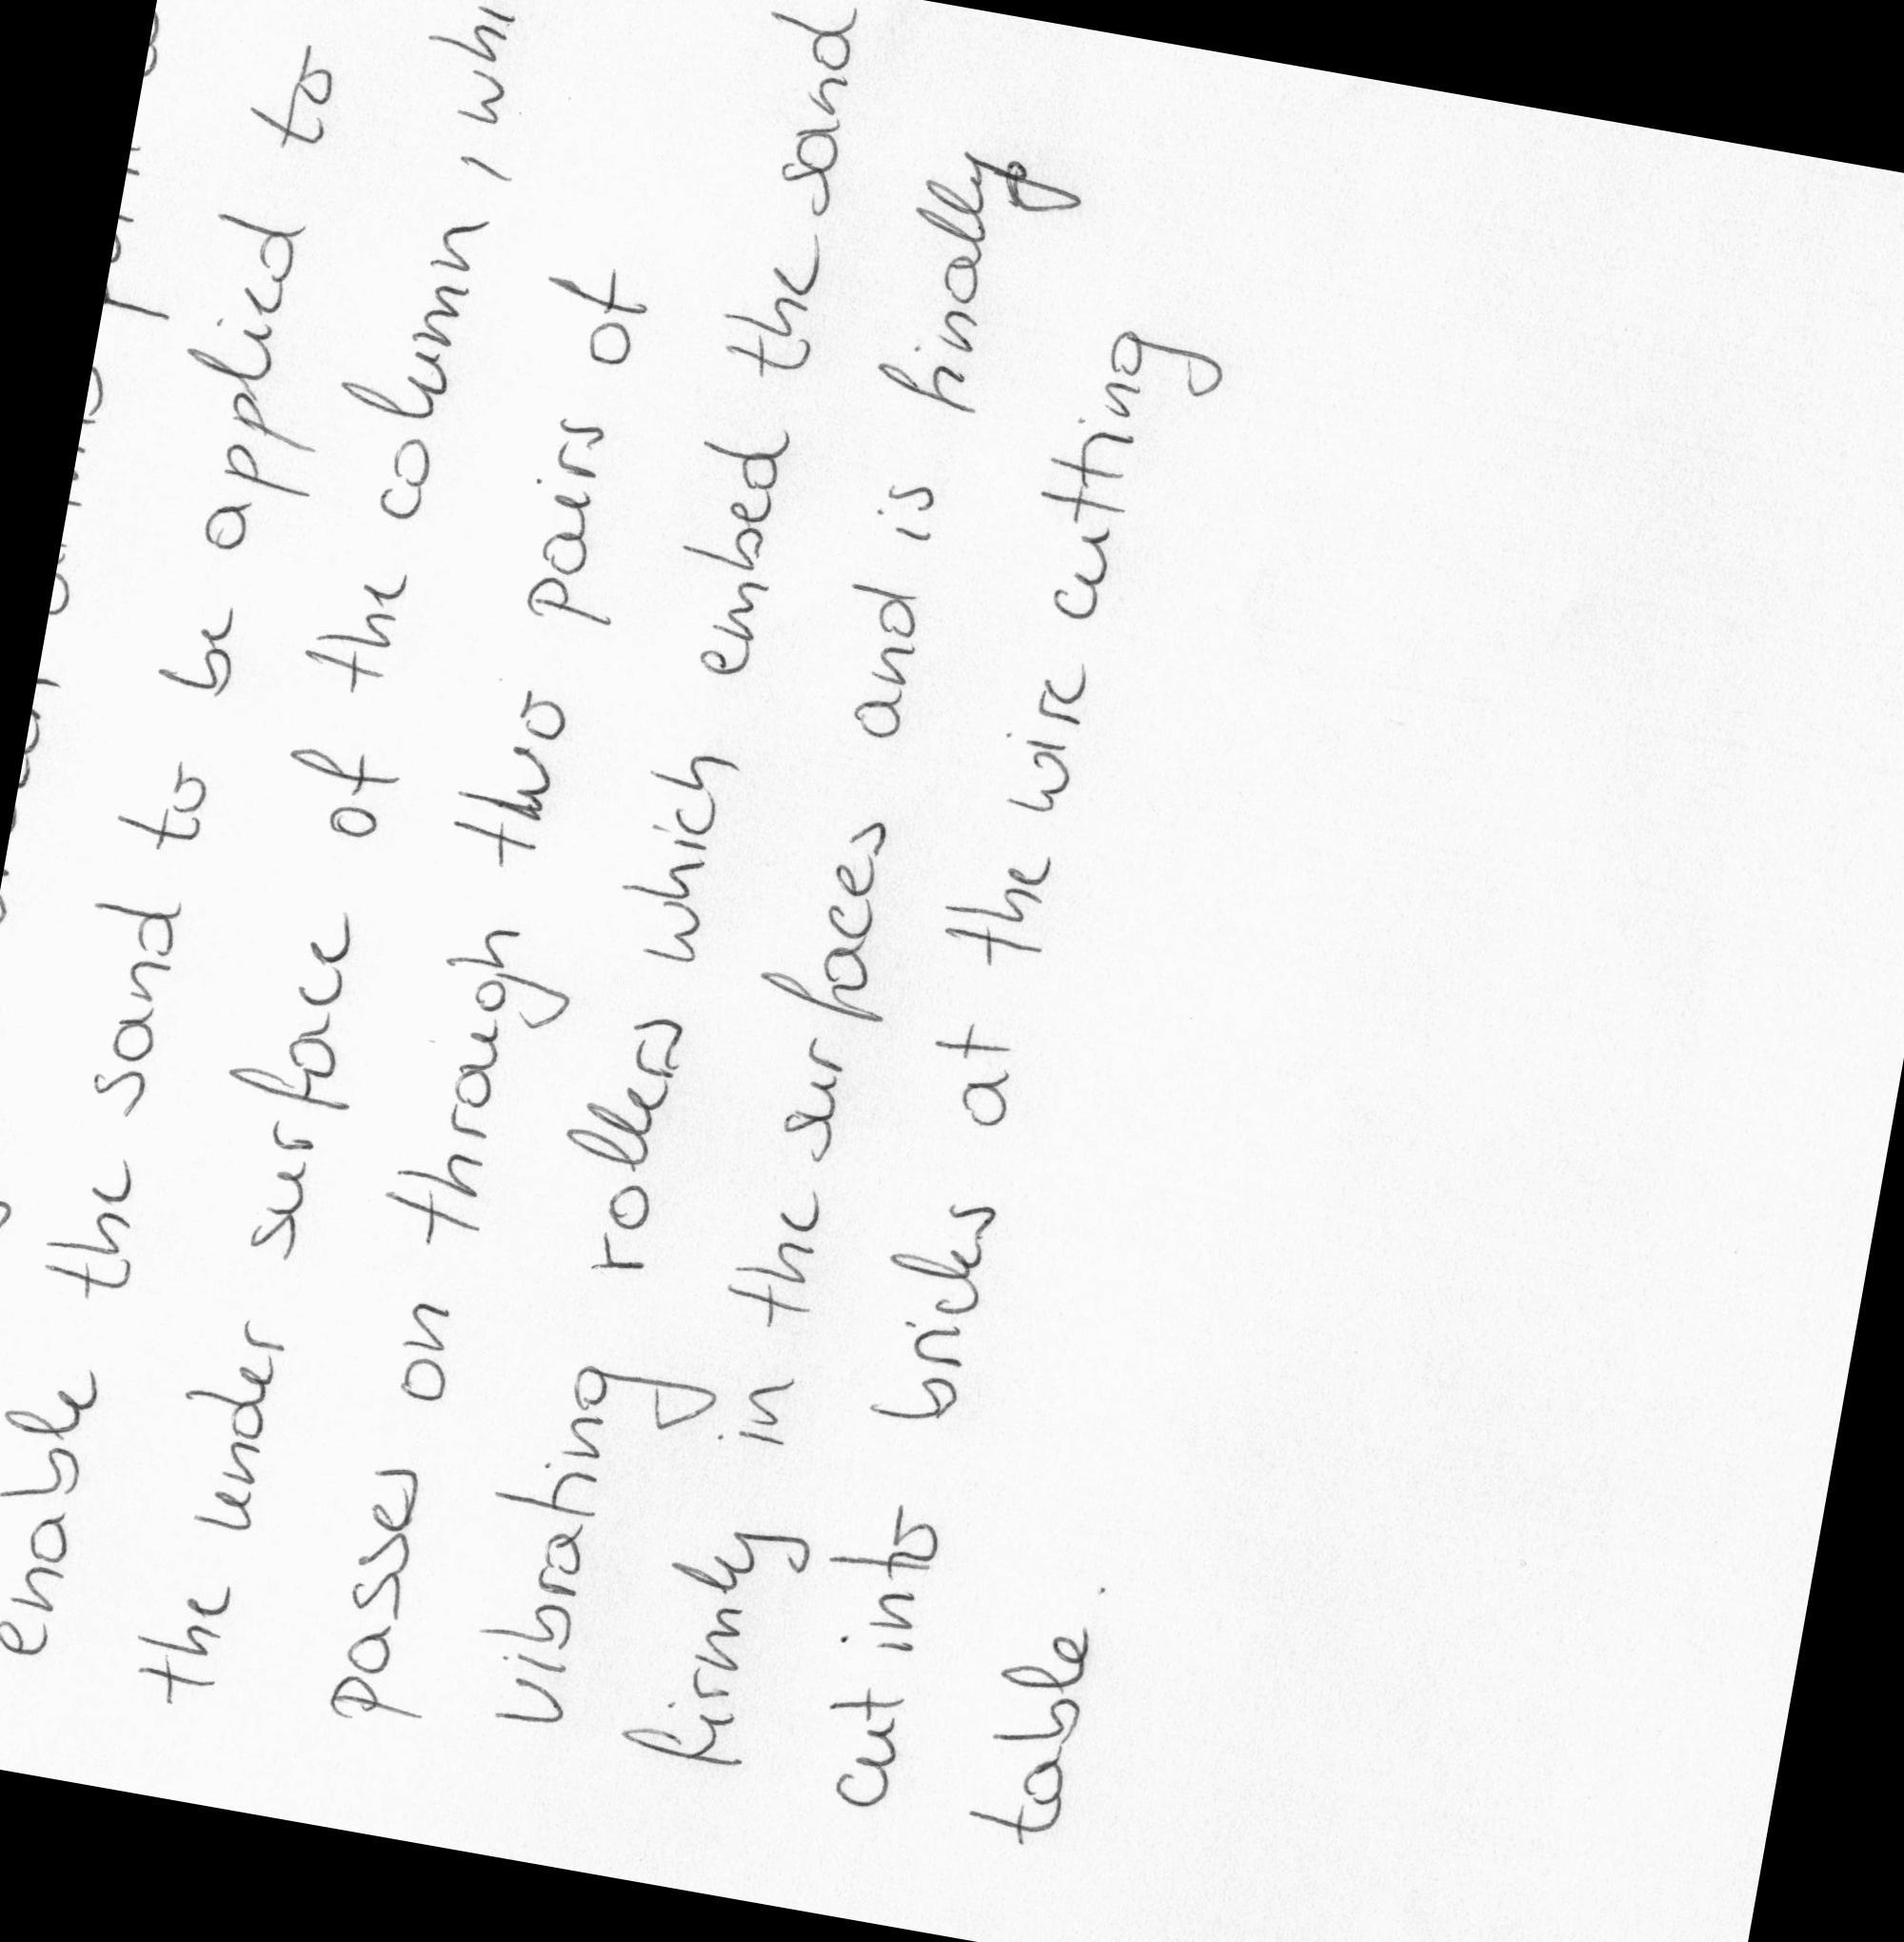 enable the sand to be applied to
the under surface of the column, whi
passes on through two pairs of
vibrating rollers which embed the sand
firmly in the surfaces and is finally
cut into bricks at the wire cutting
table.